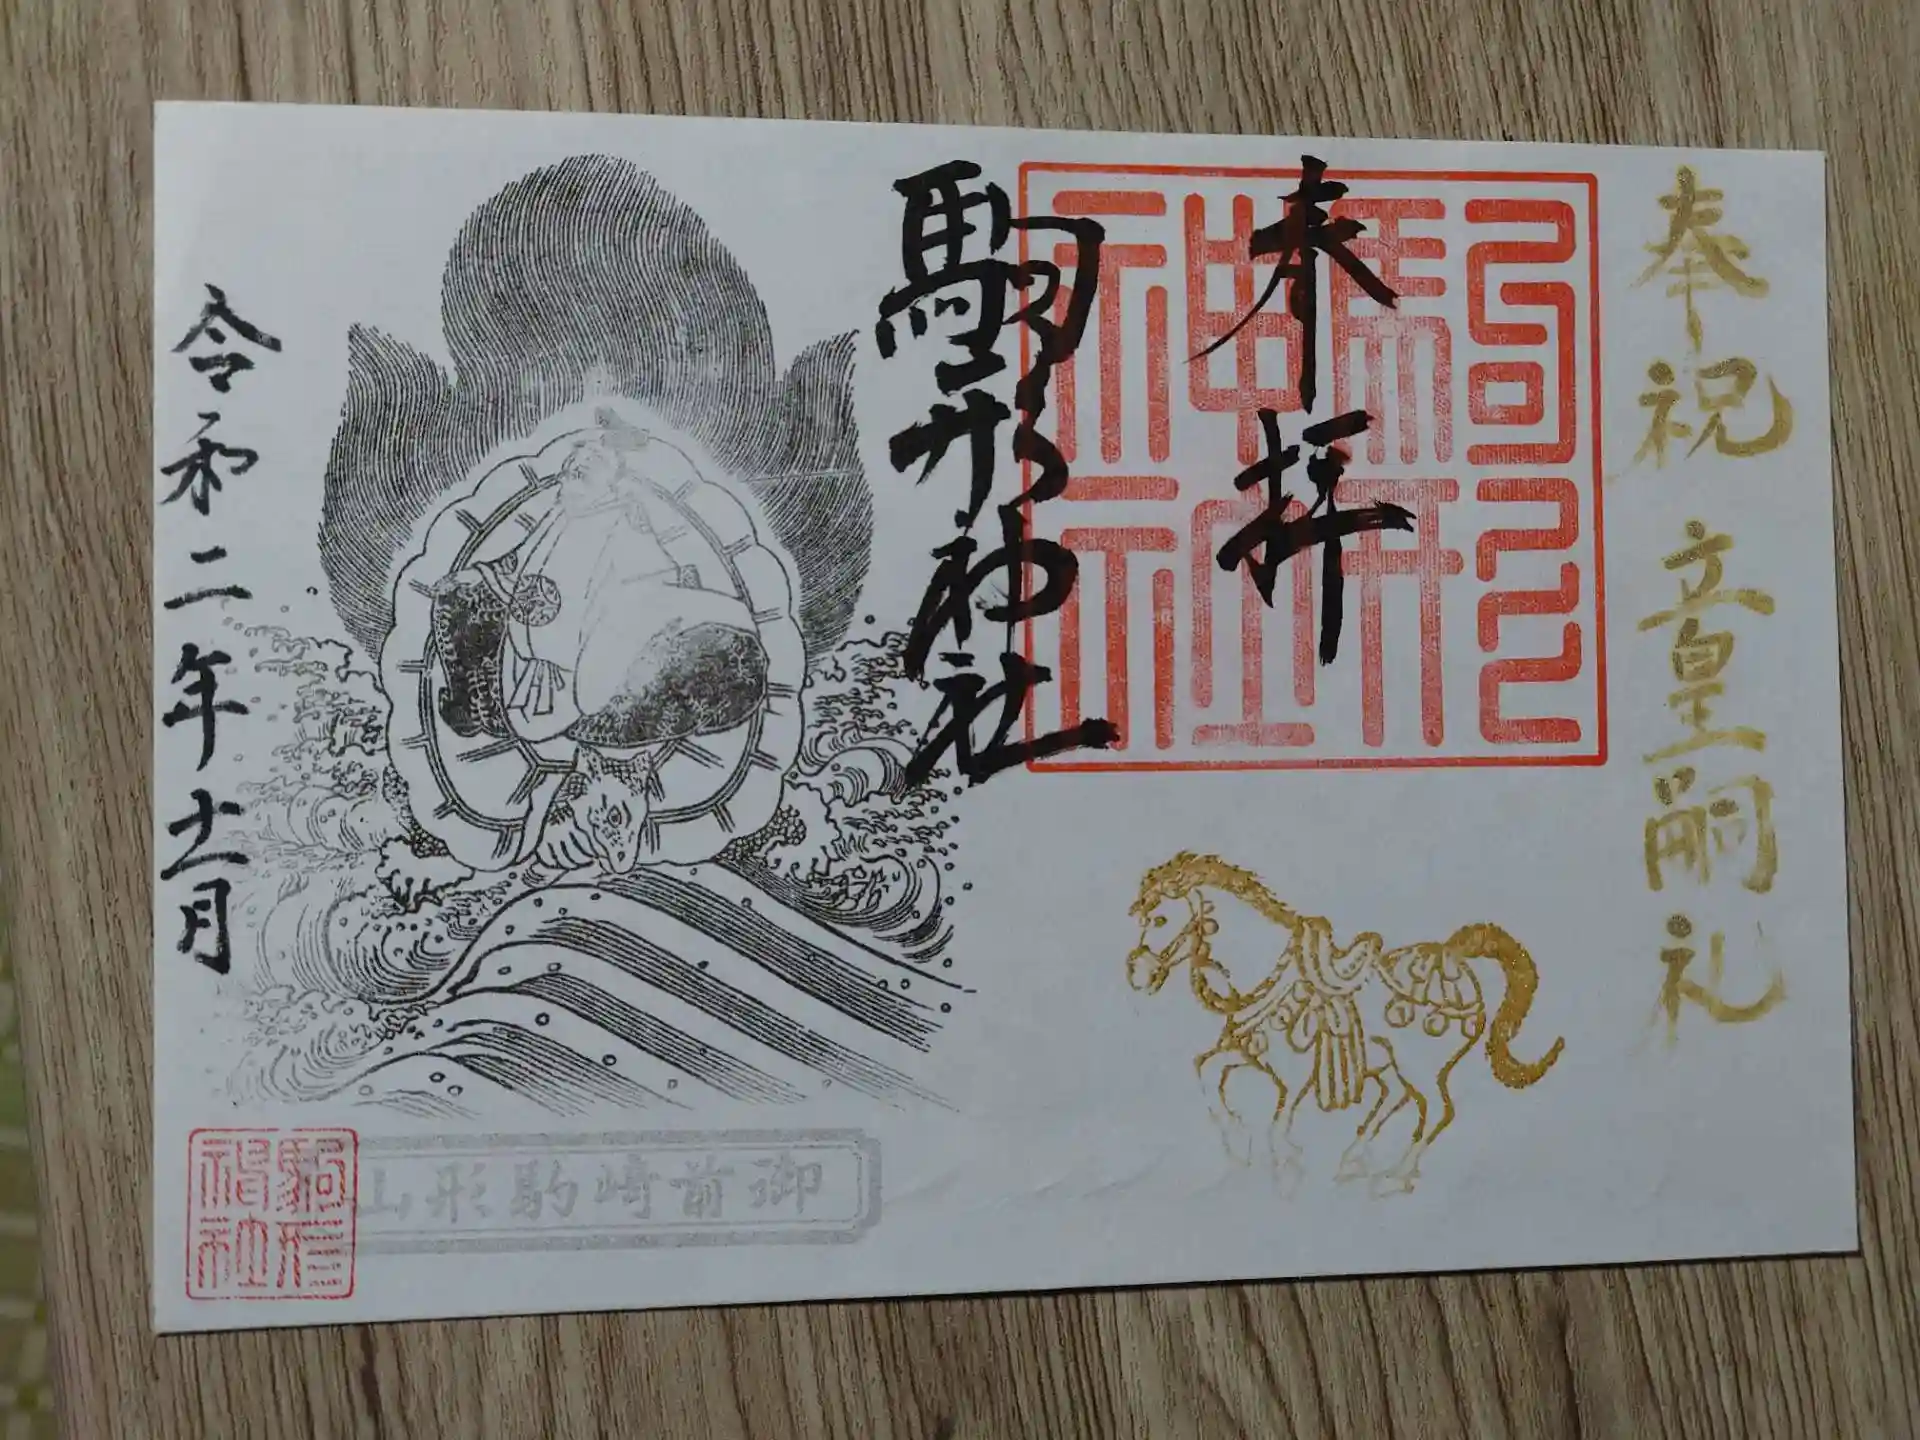 奉祝 立皇嗣礼
奉拝
駒形神社
駒形神社
令和二年十一月
御前崎駒形山
駒形神社